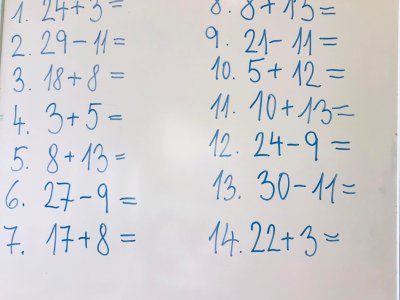 1. 24+3=
2. 29-11=
3. 18+8=
4. 3+5=
5. 8+13=
6. 27-9=
7. 17+8=
8. 8+13=
9. 21-11=
10. 5+12=
11. 10+13=
12. 24-9=
13. 30-11=
14. 22+3=